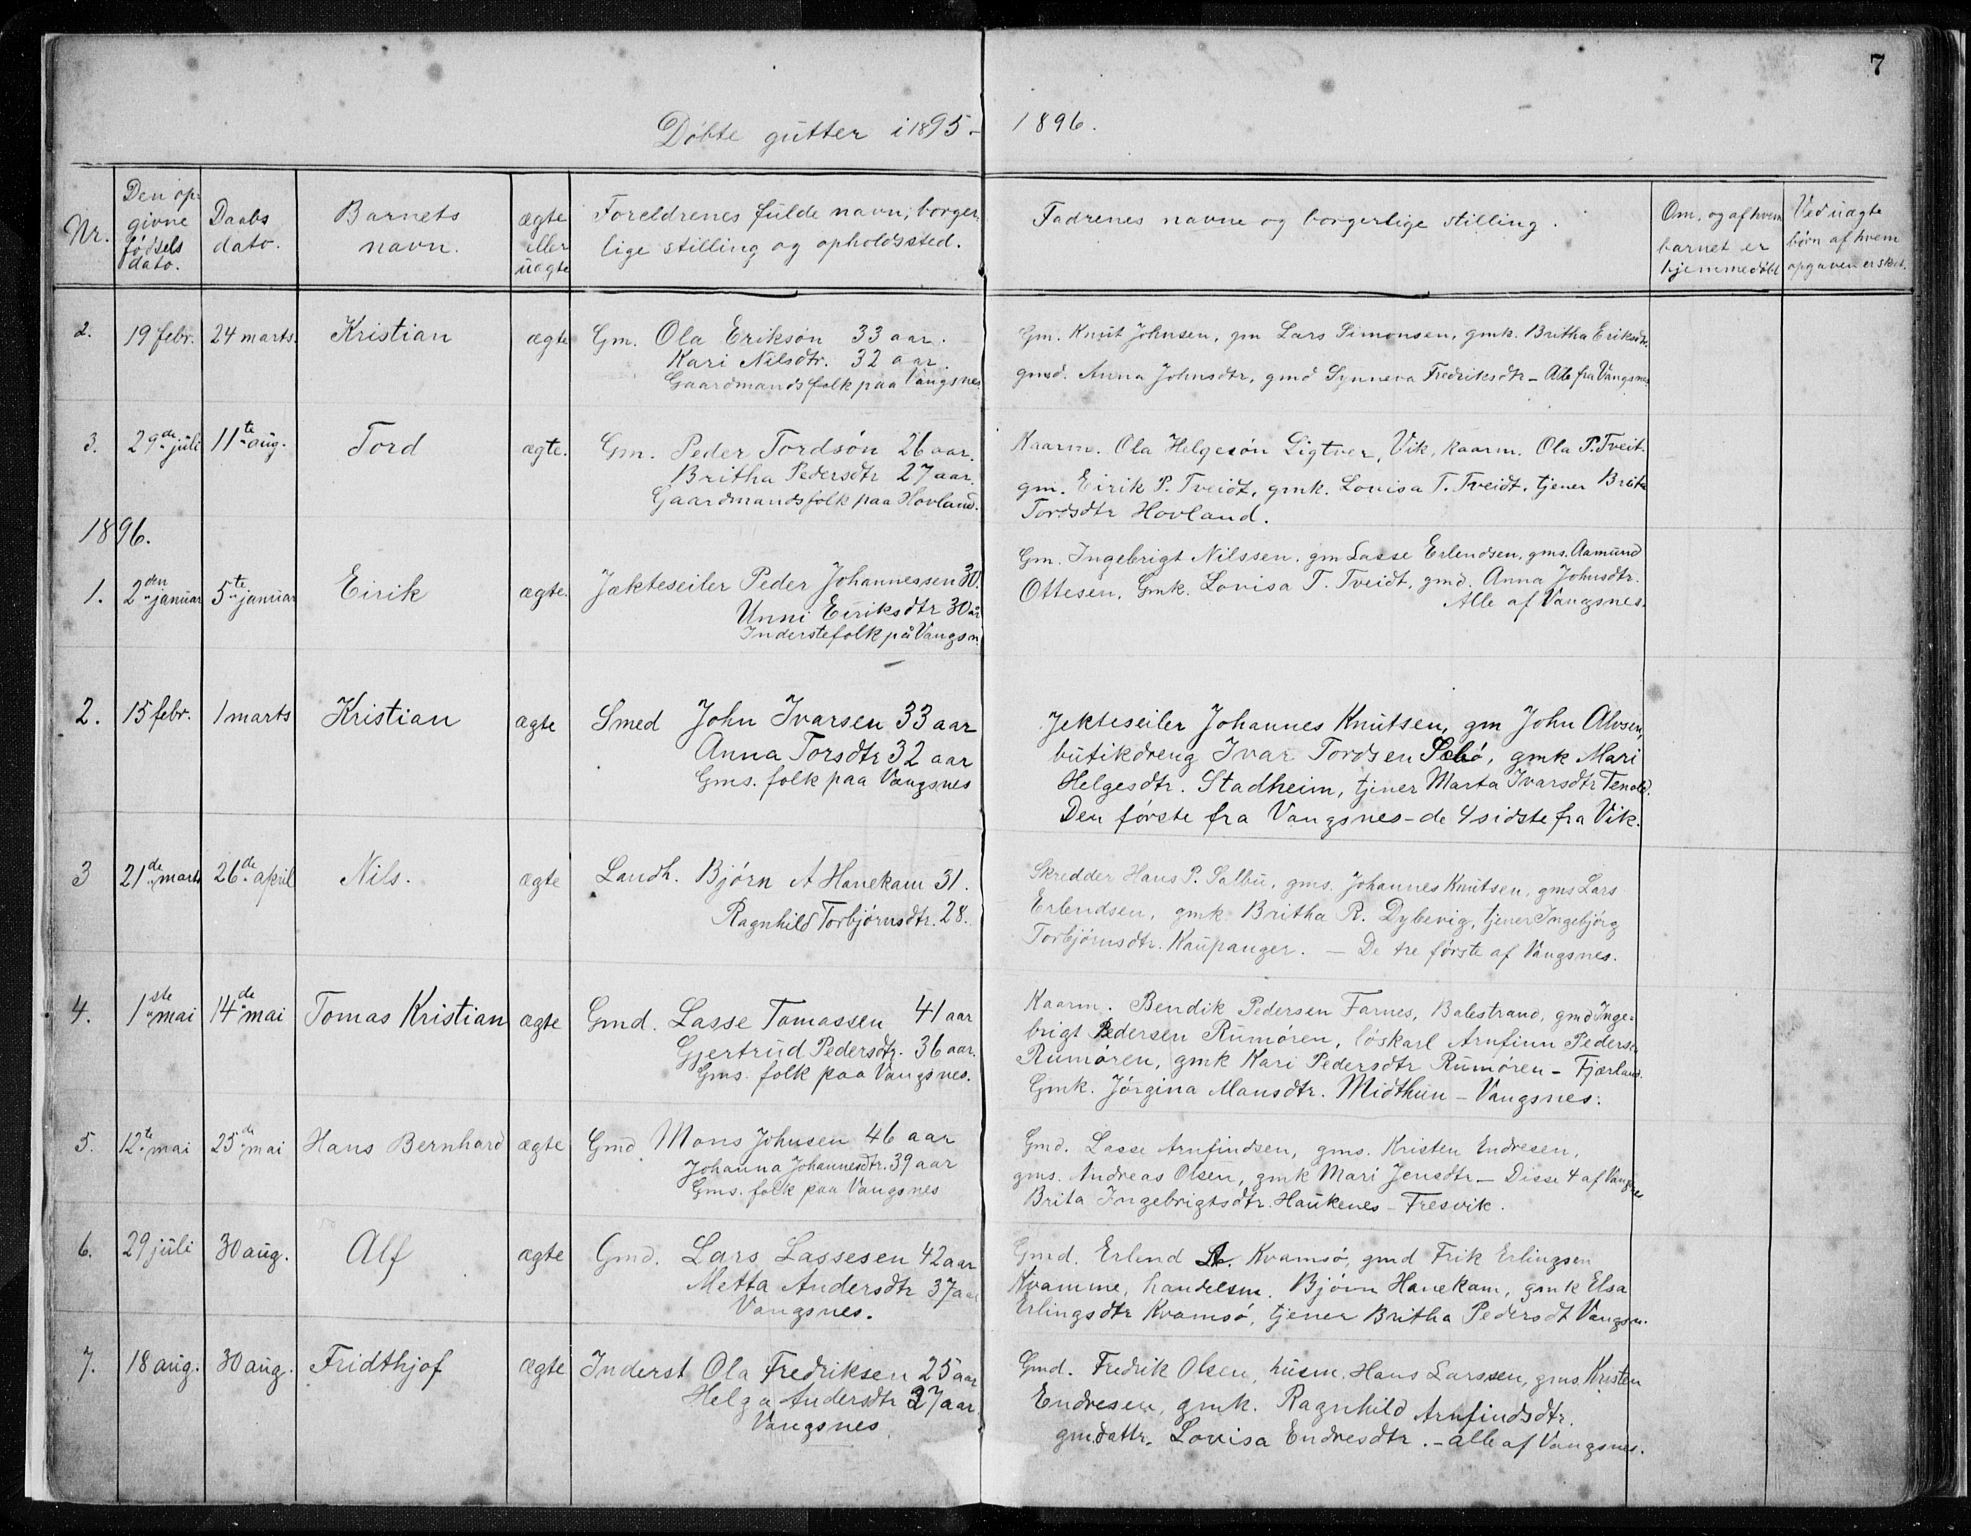 7
Döbte gutter i 1895 - 1896.
Nr.
Den op-
givne
födsels
dato.
Daabs
dato.
Barnets
navn.
ægte
eller
uægte
Foreldrenes fulde navn, borger
lige stilling og opholdssted.
Fadrenes navne og borgerlige stilling.
Om, og af hvem
barnet er
hjemmedöbt
Ved uægte
börn af hvem
opgaven er sket.
2. 19 febr. 24 marts. Kristian ægte Gm. Ola Eriksön 33 aar.
Kari Nilsdtr. 32 aar.
Gaardmandsfolk paa Vangsnes
Gm. Knut Johnsen, gm Lars Simonsen, gmk. Britha Eriksdtr.
gmd. Anna Johnsdtr, gmd Synneva Fredriksdtr - Alle fra Vangsnes
3. 29de juli 11te aug. Tord ægte. Gm. Peder Tordsön 26 aar.
Britha Pedersdtr 27 aar.
Gaardmandsfolk paa Hovland.
Kaarm. Ola Helgesön Ligtver, Vik, kaarm. Ola P. Tveit.
gm. Eirik P. Tveidt, gmk. Lovisa T. Tveidt, tjener Brita
Tordsdtr Hovland.
1896.
1. 2den januar 5te januar Eirik ægte. Jækteseiler Peder Johannessen 30.
Unni Eiriksdtr 30 år
Inderstefolk på Vangsn.
Gm. Ingebrigt Nilssen, gm Lasse Erlendsen, gms. Aamund
Ottesen, Gmk. Lovisa T. Tveidt, gmd. Anna Johnsdtr.
Alle af Vangsnes.
2. 15 febr. 1 marts Kristian ægte Smed John Ivarsen 33 aar
Anna Torsdtr 32 aar
Gms. folk paa Vangsnes
Jekteseiler Johannes Knutsen, gm John Alvsen,
butikdreng Ivar Tordsen Sebö, gmk Mari
Helgesdtr. Stadheim, tjener Marta Ivarsdtr Tenold.
Den förste fra Vangsnes - de 4 sidste fra Vik.
3 21de marts 26de april Nils. ægte Landh. Björn A Hanekam 31.
Ragnhild Torbjörnsdtr. 28.
Skredder Hans P. Salbu, gms. Johannes Knutsen, gms Lars
Erlendsen, gmk Britha R. Dybevig, tjener Ingebjörg
Torbjörnsdtr. Kaupanger. - De tre förste af Vangsnes.
4. 1ste mai 14de mai Tomas Kristian ægte Gmd. Lasse Tomassen 41 aar
Gjertrud Pedersdtr. 36 aar.
Gms. folk paa Vangsnes.
Kaarm. Bendik Pedersen Farnes, Balestrand, gmd Inge-
brigt Pedersen Rumören, löskarl Arnfinn Pedersen
Rumören, gmk Kari Pedersdtr Rumören - Fjærland.
Gmk. Jörgina Monsdtr. Midthun - Vangsnes.
5. 12te mai 25de mai Hans Bernhard ægte Gmd Mons Johnsen 46 aar
Johanna Johannesdtr. 39 aar
Gms. folk paa Vangsnes
Gmd. Lasse Arnfindsen, gms. Kristen Endresen,
gms. Andreas Olsen, gmk Mari Jensdtr - Disse 4 af Vangsnes
Brita Ingebrigtsdtr. Haukenes - Fresvik.
6. 29 juli 30 aug. Alf ægte Gmd. Lars Lassesen 42 aar
Metta Andersdtr 37 aar
Vangsnes.
Gmd. Erlend A. Kvamsö, gmd Erik Erlingsen
Kvamme, handelsm. Björn Hanekam, gmk Elsa
Erlingsdtr Kvamsö, tjener Britha Pedersdt Vangsn.
7. 18 aug. 30 aug. Fridthjof ægte Inderst Ola Fredriksen 25 aar
Helga Andersdtr 27 aar
Vangsnes
Gmd. Fredrik Olsen, husm. Hans Larssen, gms Kristen
Endresen, gmk. Ragnhild Arnfindsdtr.
gmdattr. Lovisa Endresdtr. - alle af Vangsnes.